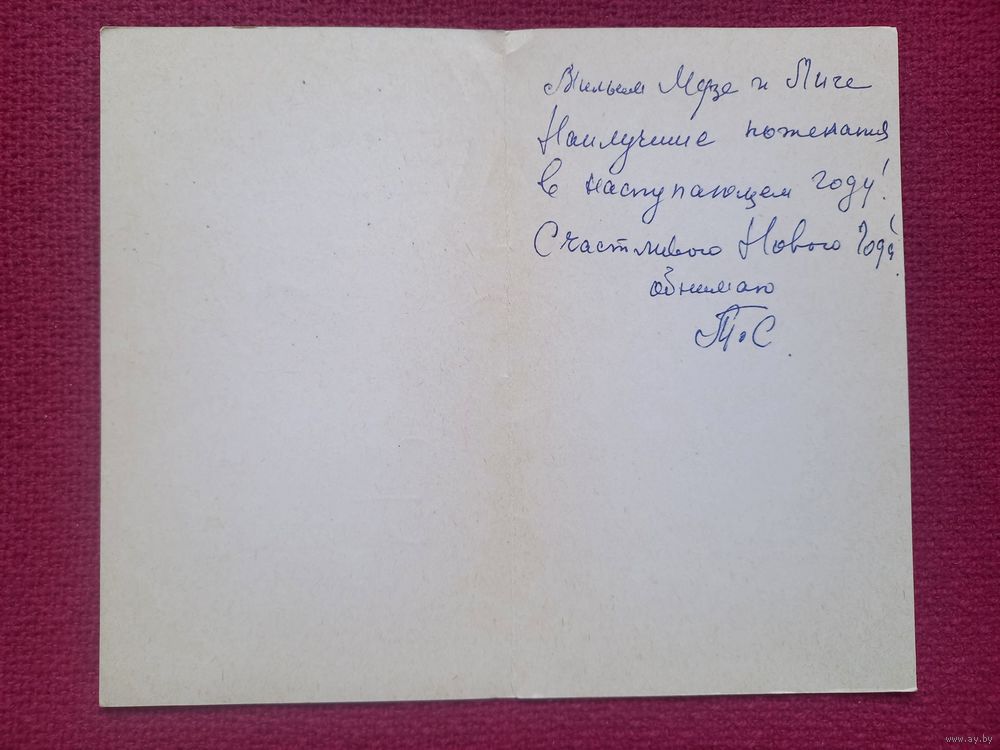 Милым Музе и Лиле
Наилучшие пожелания
в наступающем году!
Счастливого Нового Года!
обнимаю
Т.С
www.ay.by